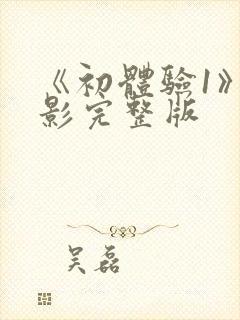 《初體验1》
影完整版
吴磊